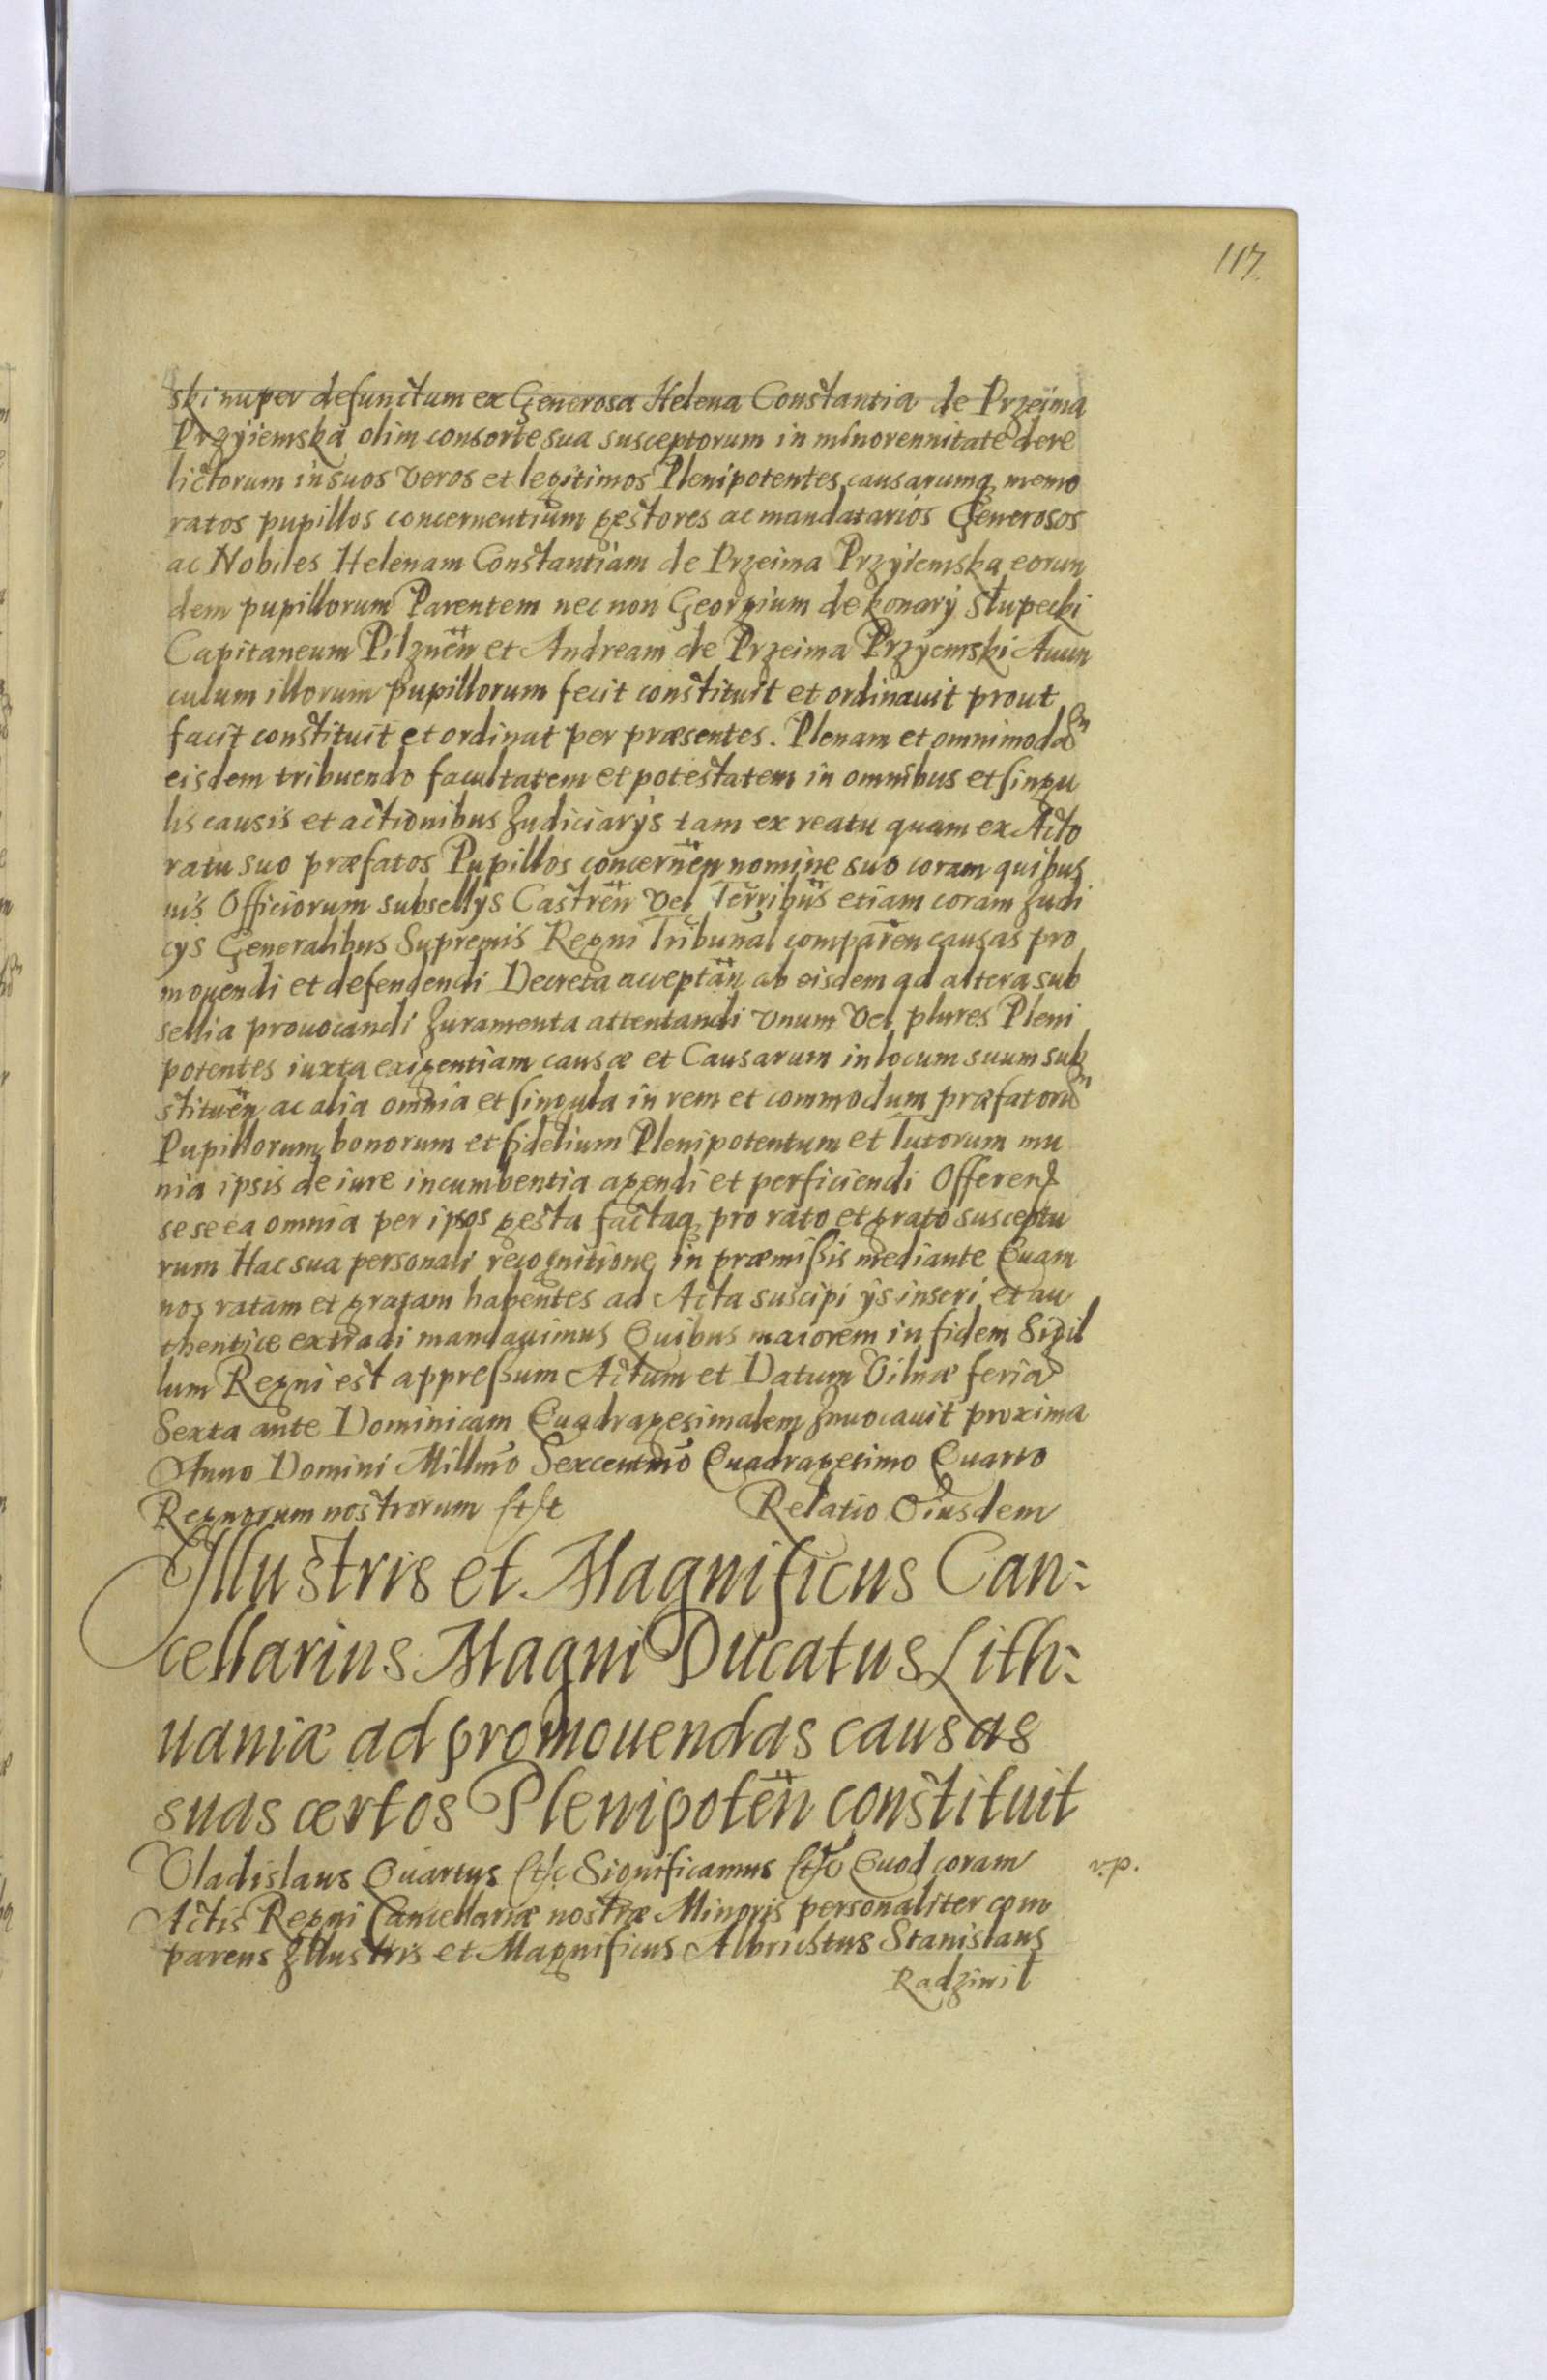 117
ski nuper defunctum ex Generosa Helena Constantia de Przeima
Przyiemska olim consorte sua susceptorum in minorennitate dere
lictorum in suos veros et legitimos Plenipotentes causarumq memo
ratos pupillos concernentium gestores ac mandatarios Generosos
ac Nobiles Helenam Constantiam de Przeima Przyiemska eorun
dem pupillorum Parentem nec non Georgium de konary Słupecki
Capitaneum Pilznen̈ et Andream de Przeima Przyemski Auun
culum illorum pupillorum fecit constituit et ordinauit prout
facit constituit et ordinat per præsentes. Plenam et omnimodam
eisdem tribuendo facultatem et potestatem in omnibus et singu
lis causis et actionibus Judiciarys tam ex reatu quam ex Acto
ratu suo præfatos Pupillos concernen̈ nomine suo coram quibus
uis Officiorum subsellys Castren̈ vel Terribüs etiam coram Judi
cys Generalibus Supremis Regni Tribunal comparen̈ causas pro
mouendi et defendendi Decreta acceptan̈ ab eisdem ad altera sub
sellia prouocandi Juramenta attentandi vnum vel plures Pleni
potentes iuxta exigentiam causæ et Causarum in locum suum sub
stituen̈ ac alia omnia et singula in rem et commodum præfatorum
Pupillorum bonorum et fidelium Plenipotentum et Tutorum mu
nia ipsis de iure incumbentia agendi et perficiendi Offerend
sese ea omnia per ipsos gesta factaq pro rato et grato susceptu
rum Hac sua personali recognitione in præmißis mediante Quam
nos ratam et gratam habentes ad Acta suscipi ÿs inseri et au
thentice extradi mandauimus Quibus maiorem in fidem Sigil
lum Regni est appreßum Actum et Datum Vilnæ feria
Sexta ante Dominicam Quadragesimalem Inuocauit proxima
Anno Domini Millmo Sexcentmo Quadragesimo Quarto
Regnorum nostrorum etc Relatio Eiusdem
Illustris et Magnificus Can:
cellarius Magni Ducatus Lith:
uaniæ ad promouendas causas
suas certos Plenipoten̈ constituit
Vladislaus Quartus etc Significamus etc Quod coram v.p.
Actis Regni Cancellariæ nostræ Minoris personaliter com
parens Illustris et Magnificus Albrichtus Stanislaus
Radziwił